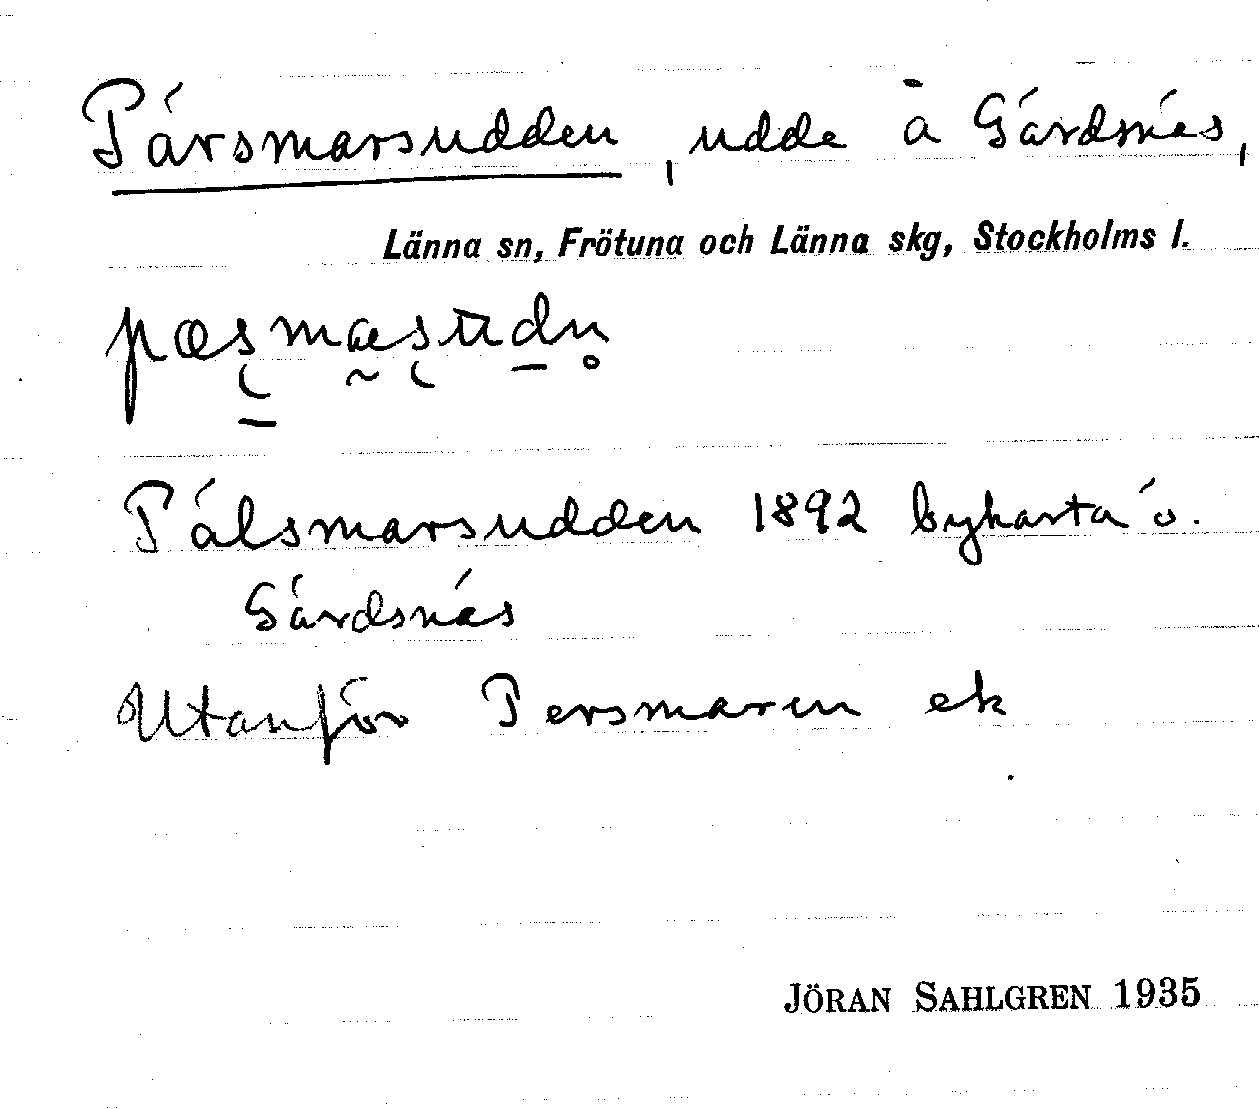 Pärsmarsudden, udde å Gärdsnäs,
Länna sn, Frötuna och Länna skg, Stockholms l.
pæs̠masudn̥
Pålsmarsudden 1892 bykarta ö.
Gärdsnäs
Utanför Persmaren ek
JÖRAN SAHLGREN 1935